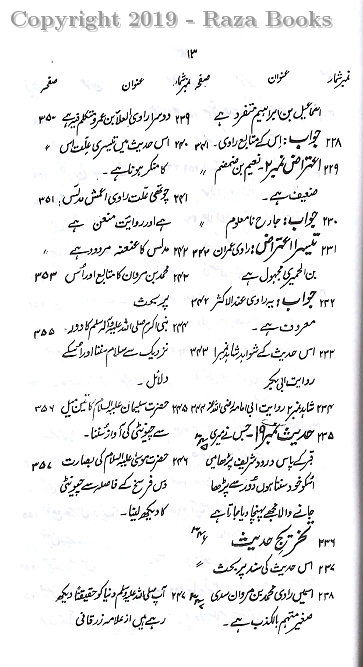 Copyright 2019 - Raza Books
۱۳
نمبر شمار عنوان صفحہ نمبر شمار عنوان صفحہ
اسماعیل بن ابراہیم متفرد ہے
۲۲۸ جواب: اس کے متابع راوی۔ ۳۴۱
۲۲۹ اعتراض نمبر ۲۔ نعیم بن ضمضم "
ضعیف ہے۔
۲۳۰ جواب: جارح نامعلوم "
۲۳۱ تیسرا اعتراض: راوی عمران ۳۴۲
بن الحمیری مجہول ہے
۲۳۲ جواب: یہ راوی عند الاکثر ۳۴۲
معروف ہے۔
۲۳۳ اس حدیث کے شواہد شاہد نمبر ۱ ۳۴۳
روایت ابی بکر
۲۳۴ شاہد نمبر ۲ روایت ابی امامہ رضی اللہ عنہ
۲۳۵ حدیث نمبر ۱۹۔ جس نے میری
قبر کے پاس درود شریف پڑھا میں
اسکو خود سنتا ہوں دور سے پڑھا
جانے والا مجھے پہنچا دیا جاتا ہے
۲۳۶ تخریج حدیث ۳۴۶
۲۳۷ اس حدیث کی سند پر بحث "
۲۳۸ اسمیں راوی محمد بن مروان سدی
صغیر متہم بالکذب ہے۔
۲۳۹ دوسرا راوی العلا بن عمرو متکلم فیہ ہے ۳۵۰
۲۴۰ اس حدیث میں تیسری علت اس "
کا منکر ہونا ہے۔
۲۴۱ چوتھی علت راوی اعمش مدلس ۳۵۱
ہے اور روایت معنعن ہے
۲۴۲ مدلس کا عنعنہ مردود ہے "
۲۴۳ محمد بن مروان کا متابع اور اس ۳۵۳
پر بحث
۲۴۴ نبی اکرم صلی اللہ علیہ وسلم کا دور ۳۵۵
نزدیک سے سلام سننا اور اسکے
دلائل۔
۲۴۵ حضرت سلیمان علیہ السلام کا تین میل ۳۵۶
سے چیونٹی کی آواز سننا۔
۲۴۶ حضرت موسیٰ علیہ السلام کی بصارت ۳۵۷
دس فرسخ کے فاصلہ سے چیونٹی
کا دیکھ لینا۔
۲۴۷ آپ صلی اللہ علیہ وسلم دنیا کو حقیقتاً دیکھ
رہے ہیں از علامہ زرقانی